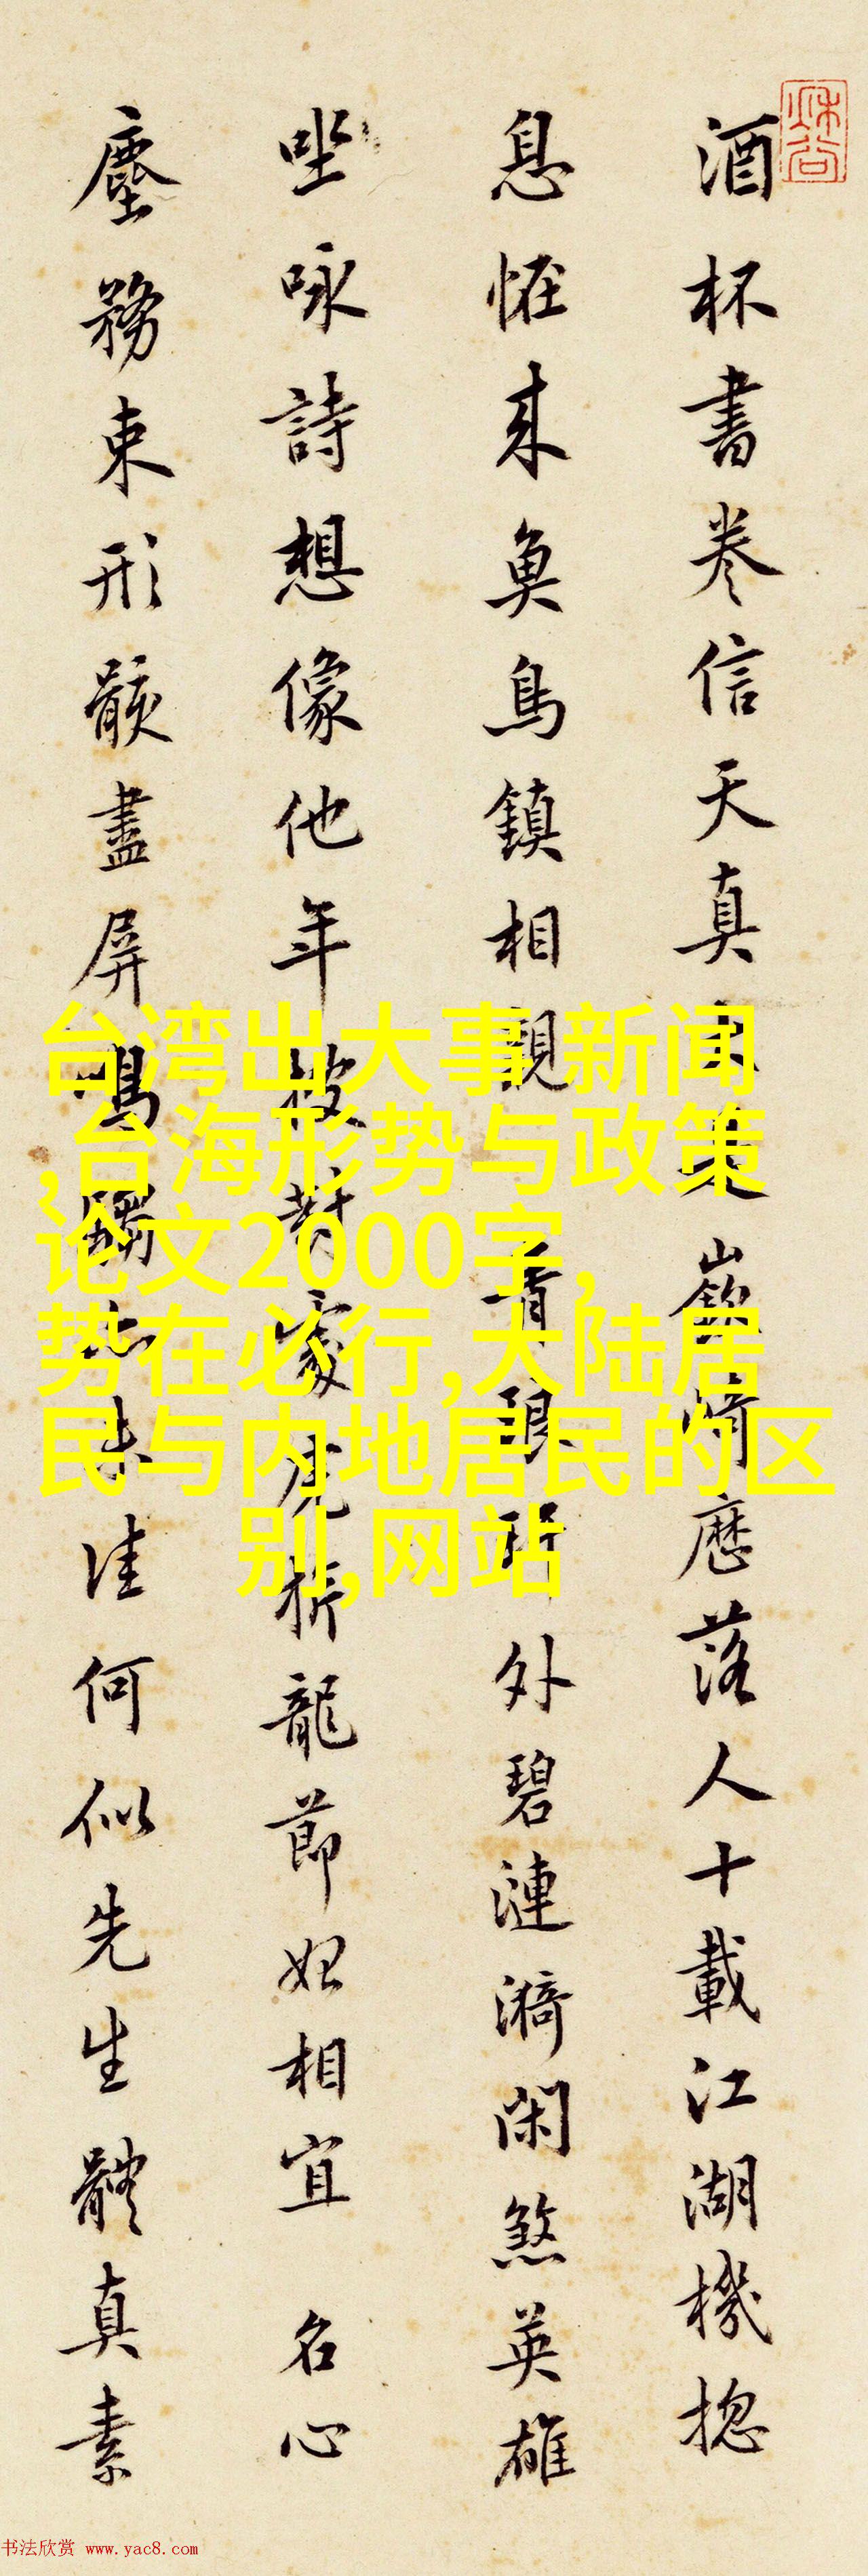 酒杯書卷信天真
崎歷落人十載江湖機捴
息怪來魚鳥鎮相親
眼
外碧漣漪閑煞英雄
坐咏詩想像他年
家
折龍節妃相宜名心
塵務束形骸盡屏
未佳何似先生體真素
台湾出大事 新闻
,台海形势与政策
论文2000字,
势在必行,大陆居
民与内地居民的区
别,网站
书法欣赏 www.yac8.com